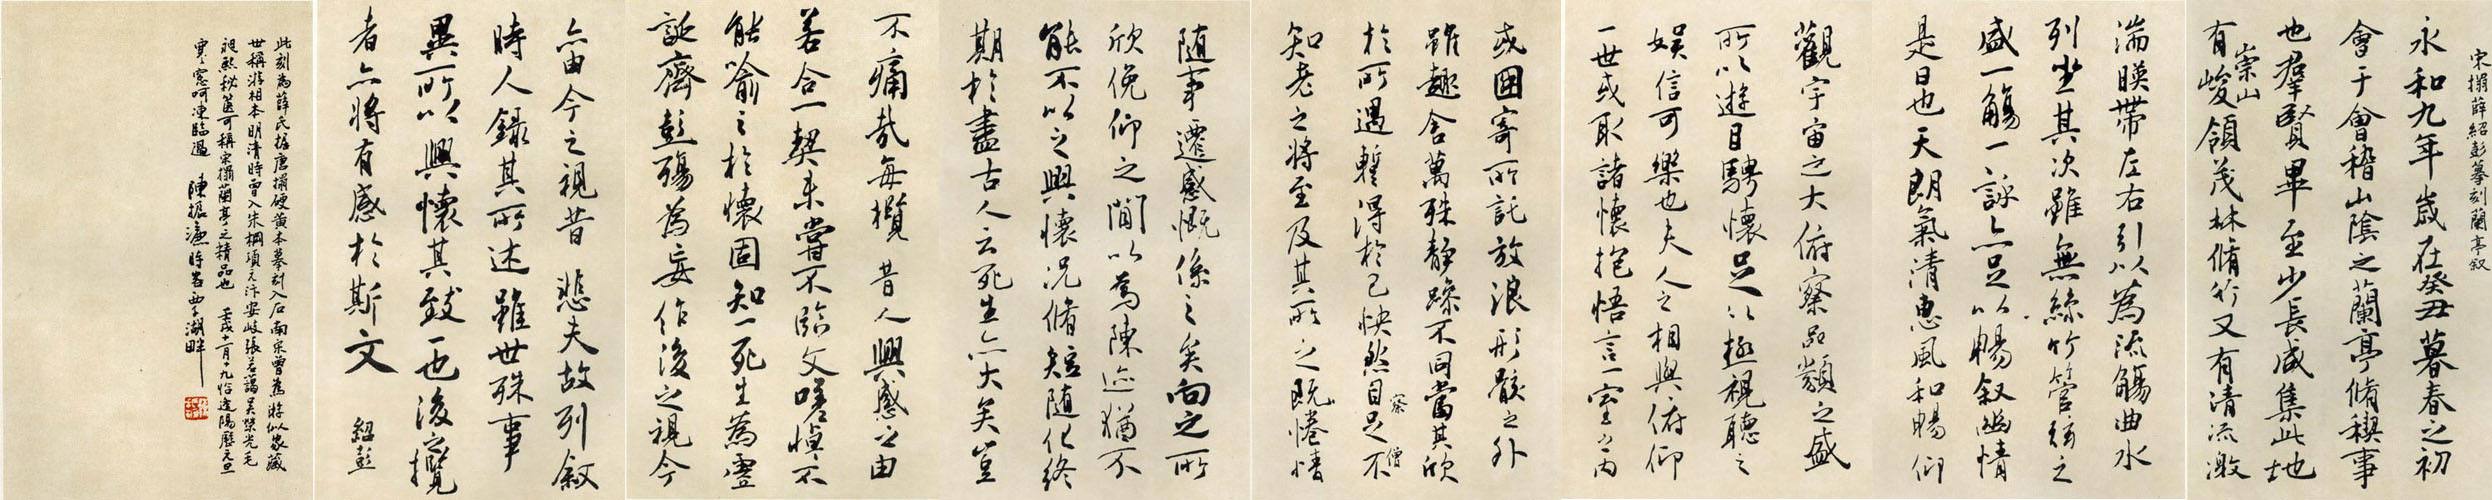 宋搨薛紹彭摹刻蘭亭叙
永和九年歲在癸丑暮春之初
會于會稽山陰之蘭亭脩稧事
也羣賢畢至少長咸集此地
崇山
有峻領茂林脩竹又有清流激
湍暎帶左右引以為流觴曲水
列坐其次雖無絲竹管弦之
盛一觴一詠亦足以暢叙幽情
是日也天朗氣清惠風和暢仰
觀宇宙之大俯察品類之盛
所以遊目騁懷足以極視聽之
娱信可樂也夫人之相與俯仰
一世或取諸懷抱悟言一室之內
或因寄所託放浪形骸之外
雖趣舍萬殊静躁不同當其欣
於所遇暫得於己快然自足不
察 僧
知老之將至及其所之既惓情
随事遷感慨係之矣向之所
欣俛仰之閒以為陳迹猶不
能不以之興懷況脩短随化終
期於盡古人云死生亦大矣豈
不痛哉每攬昔人興感之由
若合一契未嘗不臨文嗟悼不
能喻之於懷固知一死生為虛
誕齊彭殤為妄作後之視今
亦由今之視昔悲夫故列叙
時人錄其所述雖世殊事
異所以興懷其致一也後之攬
者亦將有感於斯文 紹彭
此刻為薛氏據唐搨硬黄本摹刻入石南宋曾為游似家藏
世稱游相本明清時曾入朱棡項元汴安岐張若藹吴榮光毛
昶熙秘篋可稱宋搨蘭亭之精品也 壬戌十一月十九恰逢陽歷元旦
寒窓呵凍臨過 陳振濂時客西子湖畔